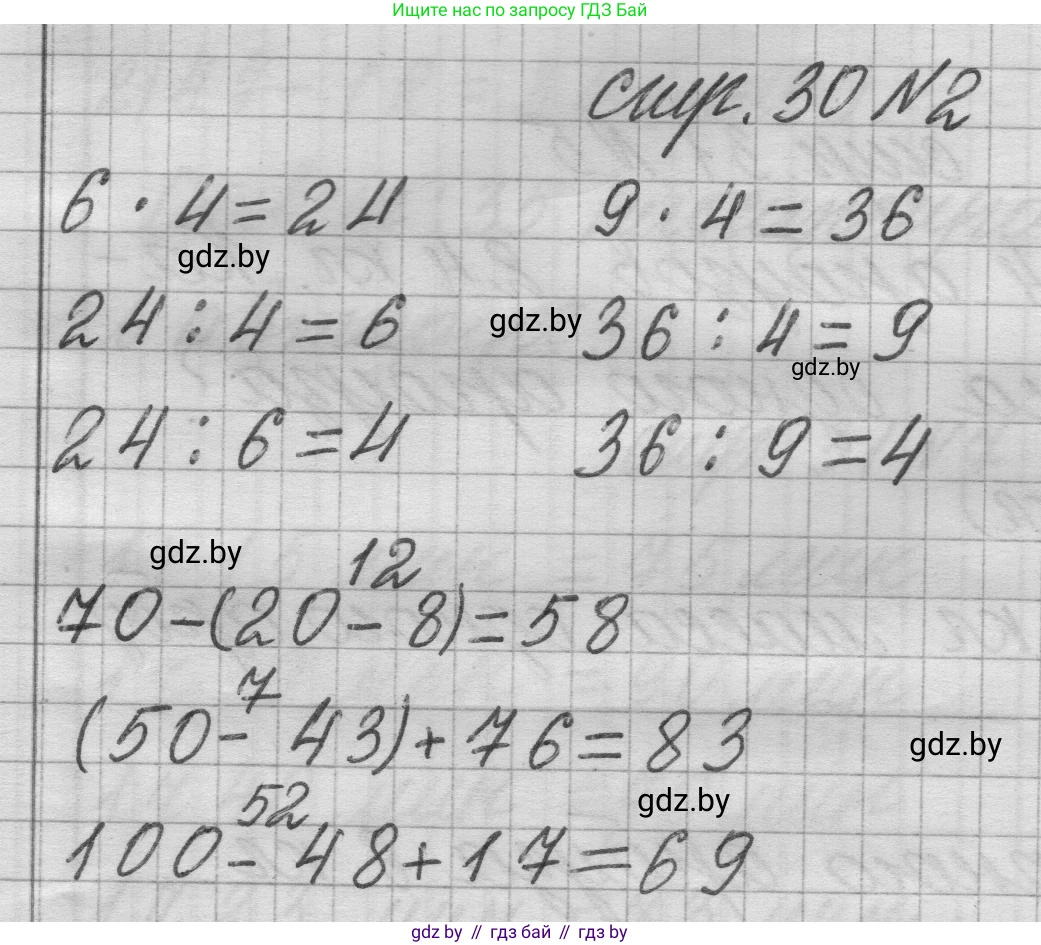 Ищите нас по запросу ГДЗ Бай
стр. 30 №2
6 · 4 = 24 9 · 4 = 36
gdz.by
24 : 4 = 6 gdz.by 36 : 4 = 9
gdz.by
24 : 6 = 4 36 : 9 = 4
gdz.by
12
70 - (20 - 8) = 58
7
(50 - 43) + 76 = 83
gdz.by
52
gdz.by
100 - 48 + 17 = 69
gdz.by // гдз бай // гдз by